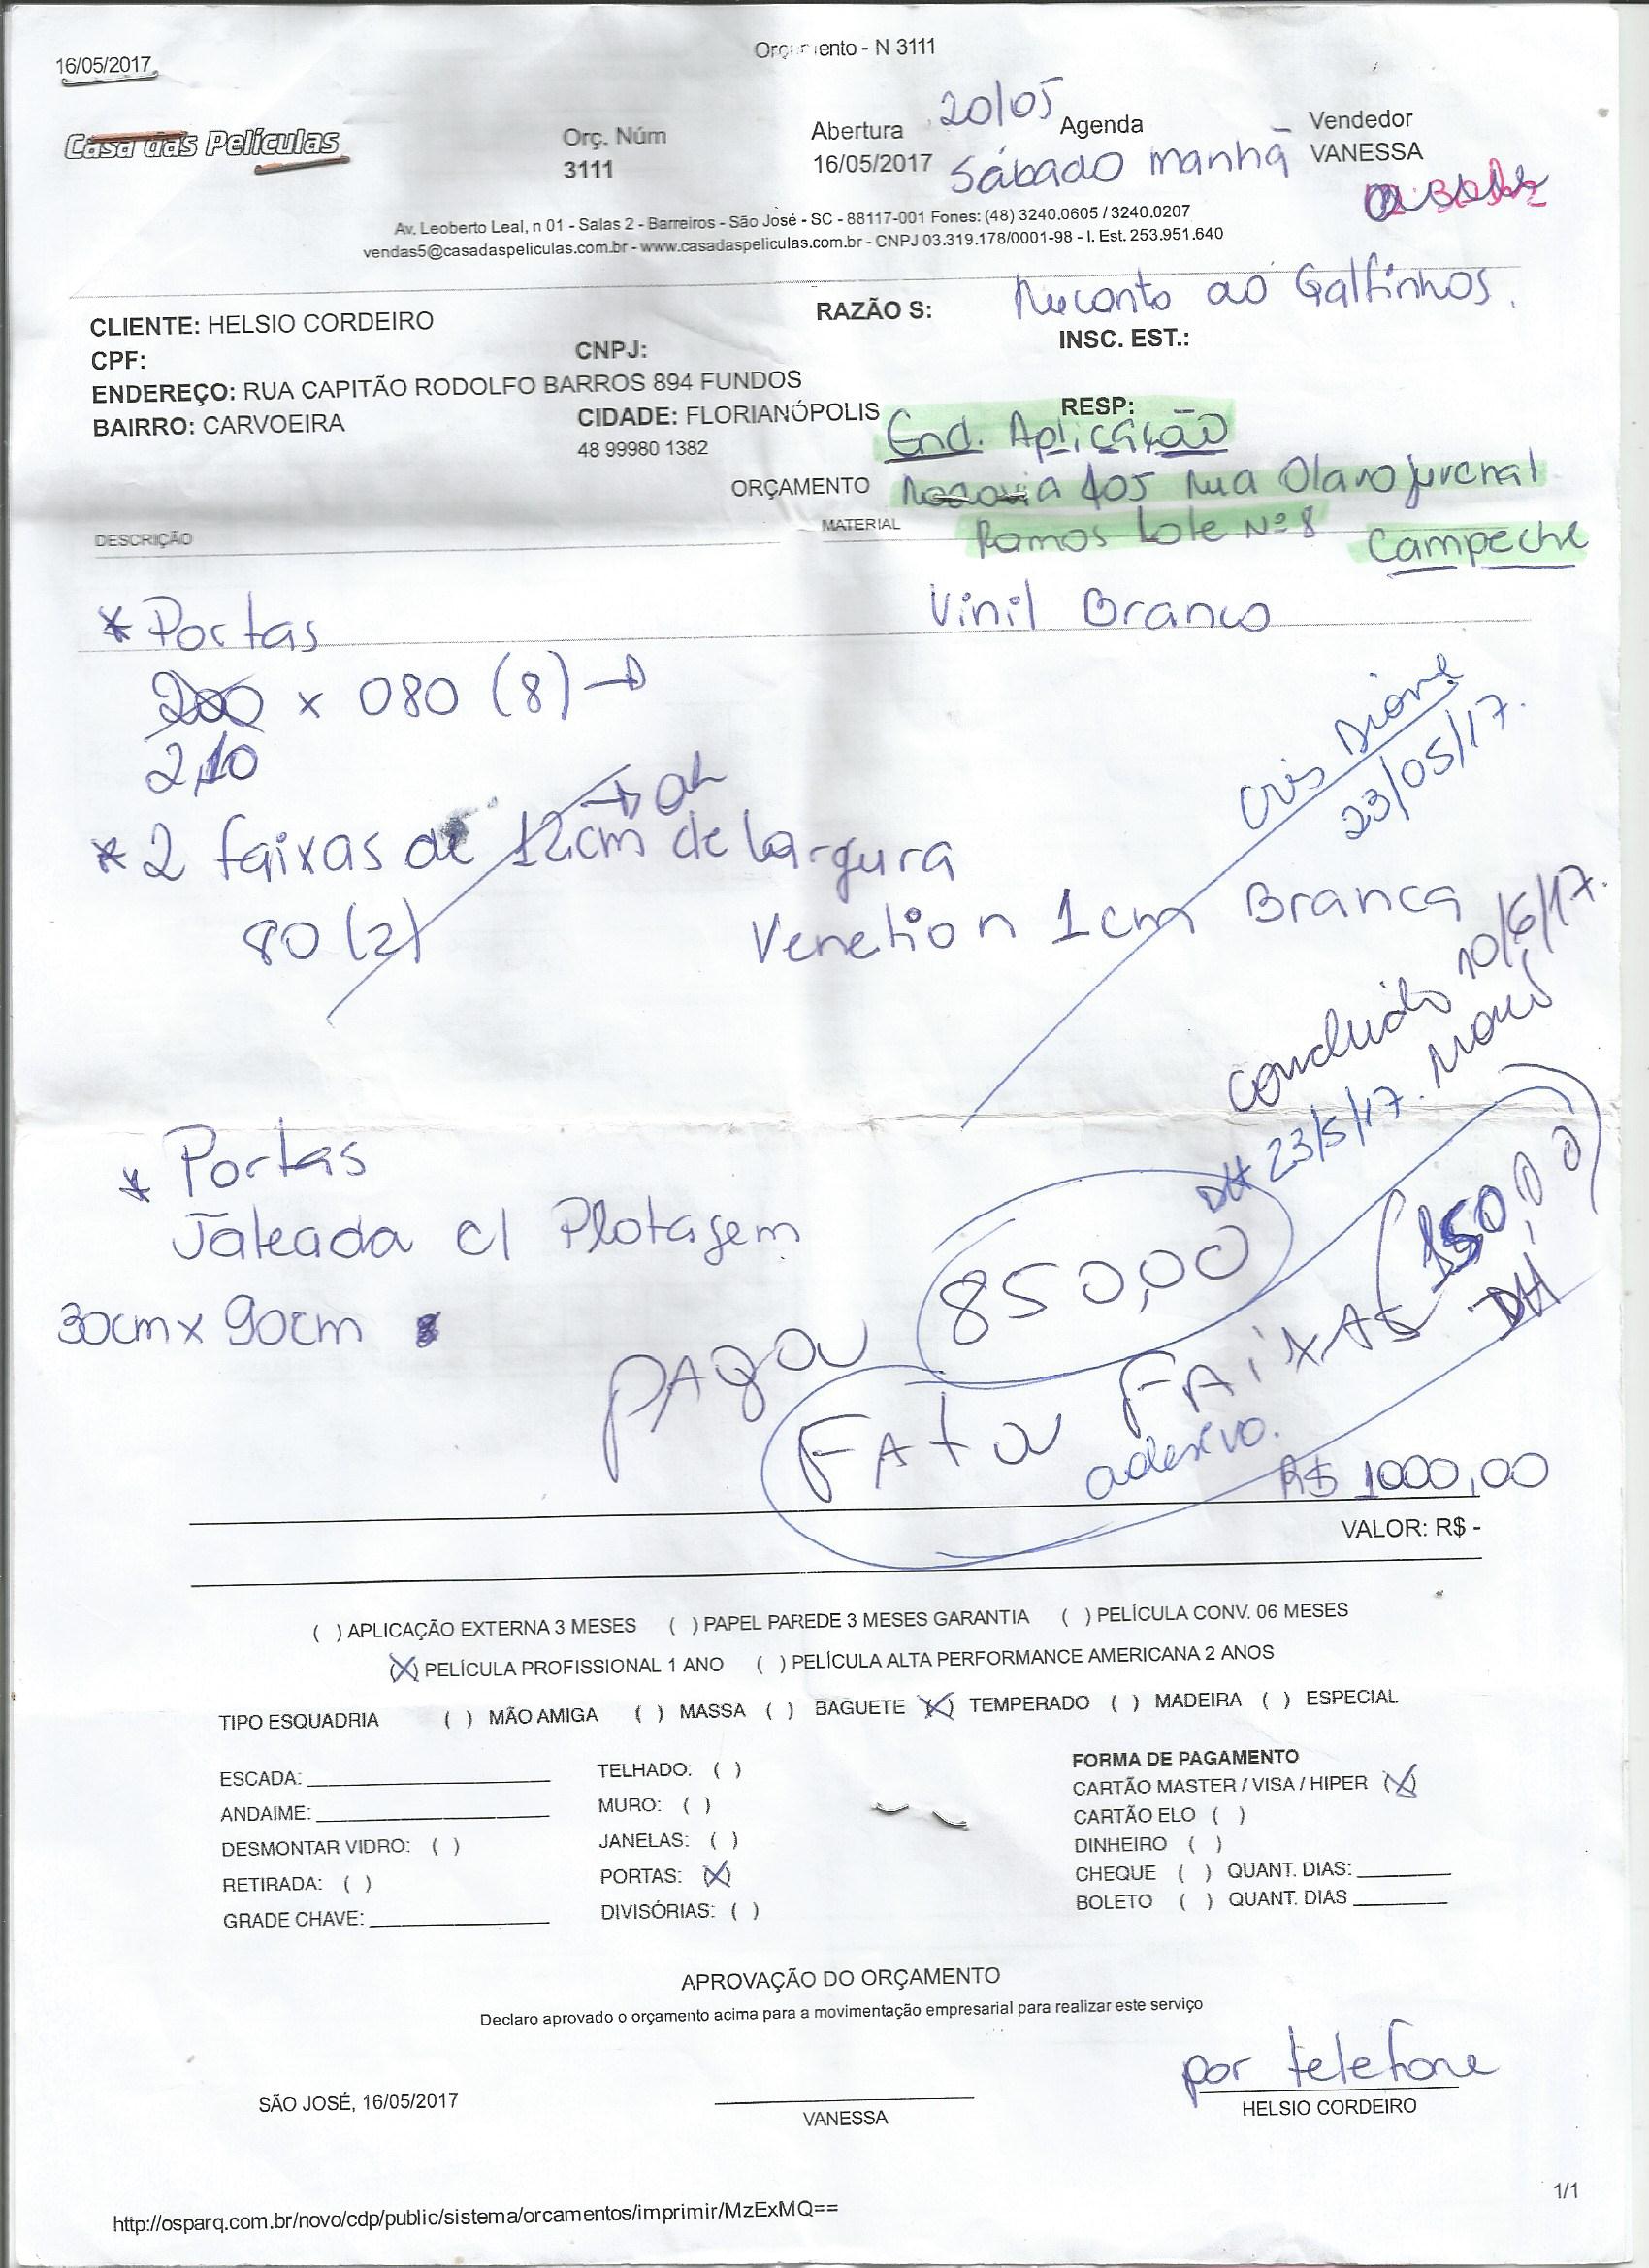 16/05/2017
Orçamento - N 3111
Casa das Películas
Orç. Núm
3111
Abertura
16/05/2017
20/05
Agenda
Sábado manhã
Vendedor
VANESSA
Av. Leoberto Leal, n 01 - Salas 2 - Barreiros - São José - SC - 88117-001 Fones: (48) 3240.0605 / 3240.0207
vendas5@casadaspeliculas.com.br - www.casadaspeliculas.com.br - CNPJ 03.319.178/0001-98 - I. Est. 253.951.640
CLIENTE: HELSIO CORDEIRO
RAZÃO S:
ao Galfinhos.
CPF:
CNPJ:
INSC. EST.:
ENDEREÇO: RUA CAPITÃO RODOLFO BARROS 894 FUNDOS
BAIRRO: CARVOEIRA
CIDADE: FLORIANÓPOLIS
RESP:
48 99980 1382
End. Aplicação
ORÇAMENTO
Rodovia 405 Rua Olavo juvenal
DESCRIÇÃO
MATERIAL
Ramos Lote Nº 8 Campeche
* Portas
Vinil Branco
200 x 080 (8)
2,10
Cris Dione
23/05/17.
ok
* 2 faixas de 12cm de largura
80 (2)
Venetion 1cm Branca
concluido 10/6/17.
DH 23/5/17.
* Portas
Jateada c/ Plotagem
30cm x 90cm
PAGOU 850,00
FAtou FAiXAS 150,00
DH
adesivo.
R$ 1000,00
VALOR: R$ -
( ) APLICAÇÃO EXTERNA 3 MESES ( ) PAPEL PAREDE 3 MESES GARANTIA ( ) PELÍCULA CONV. 06 MESES
(X) PELÍCULA PROFISSIONAL 1 ANO ( ) PELÍCULA ALTA PERFORMANCE AMERICANA 2 ANOS
TIPO ESQUADRIA ( ) MÃO AMIGA ( ) MASSA ( ) BAGUETE (X) TEMPERADO ( ) MADEIRA ( ) ESPECIAL
ESCADA:
ANDAIME:
DESMONTAR VIDRO: ( )
RETIRADA: ( )
GRADE CHAVE:
TELHADO: ( )
MURO: ( )
JANELAS: ( )
PORTAS: (X)
DIVISÓRIAS: ( )
FORMA DE PAGAMENTO
CARTÃO MASTER / VISA / HIPER (X)
CARTÃO ELO ( )
DINHEIRO ( )
CHEQUE ( ) QUANT. DIAS:
BOLETO ( ) QUANT. DIAS
APROVAÇÃO DO ORÇAMENTO
Declaro aprovado o orçamento acima para a movimentação empresarial para realizar este serviço
por telefone
SÃO JOSÉ, 16/05/2017
VANESSA
HELSIO CORDEIRO
1/1
http://osparq.com.br/novo/cdp/public/sistema/orcamentos/imprimir/MzExMQ==